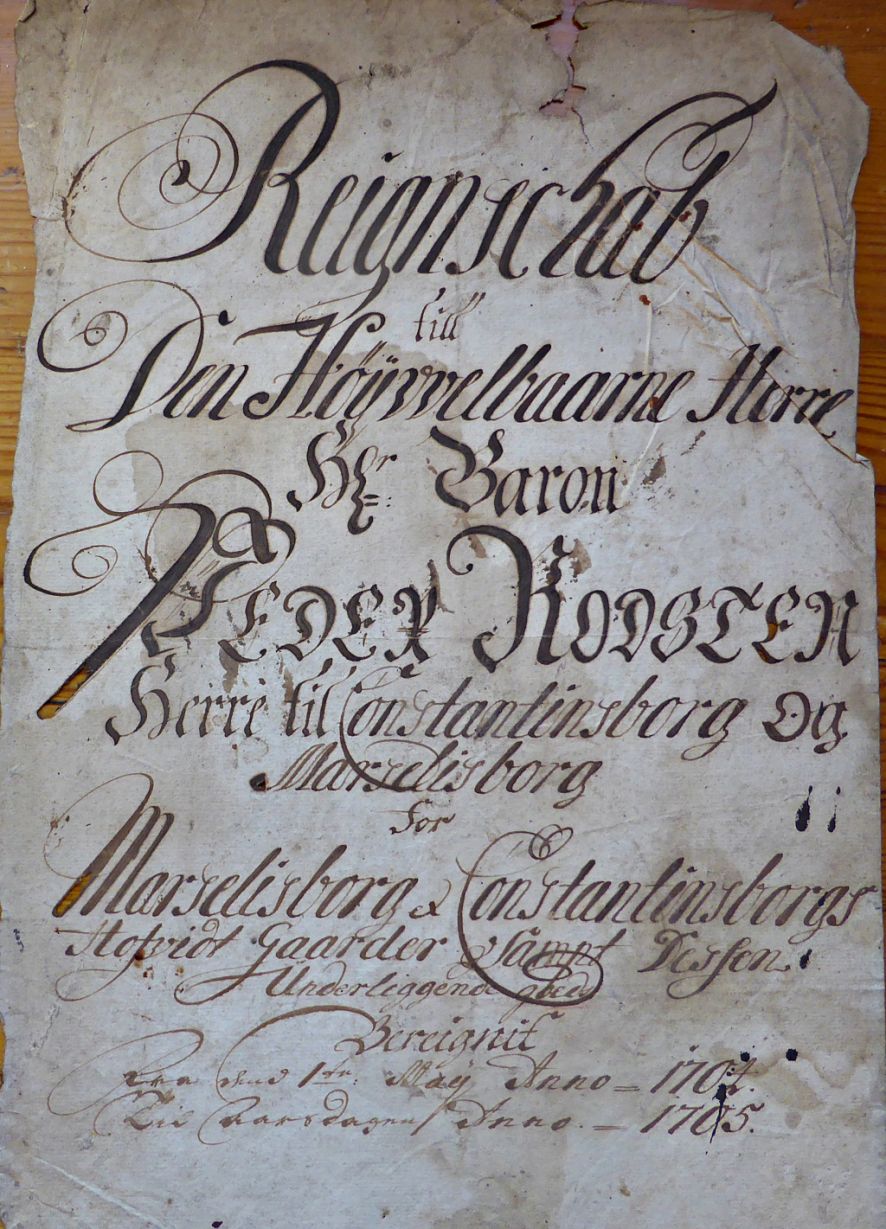 Reignschab
till
Den Höÿwelbaarne Herre
Hr. Baron
PEDER RODSTEN
Herre til Constantinsborg Og
Marselisborg
for
Marselisborg & Constantinsborgs
Hofvidt Gaarder Sampt Dessen
Underliggende
Bereignit
Fra den 1te Maÿ Anno = 1704.
Til Aarsdagen Anno = 1705.